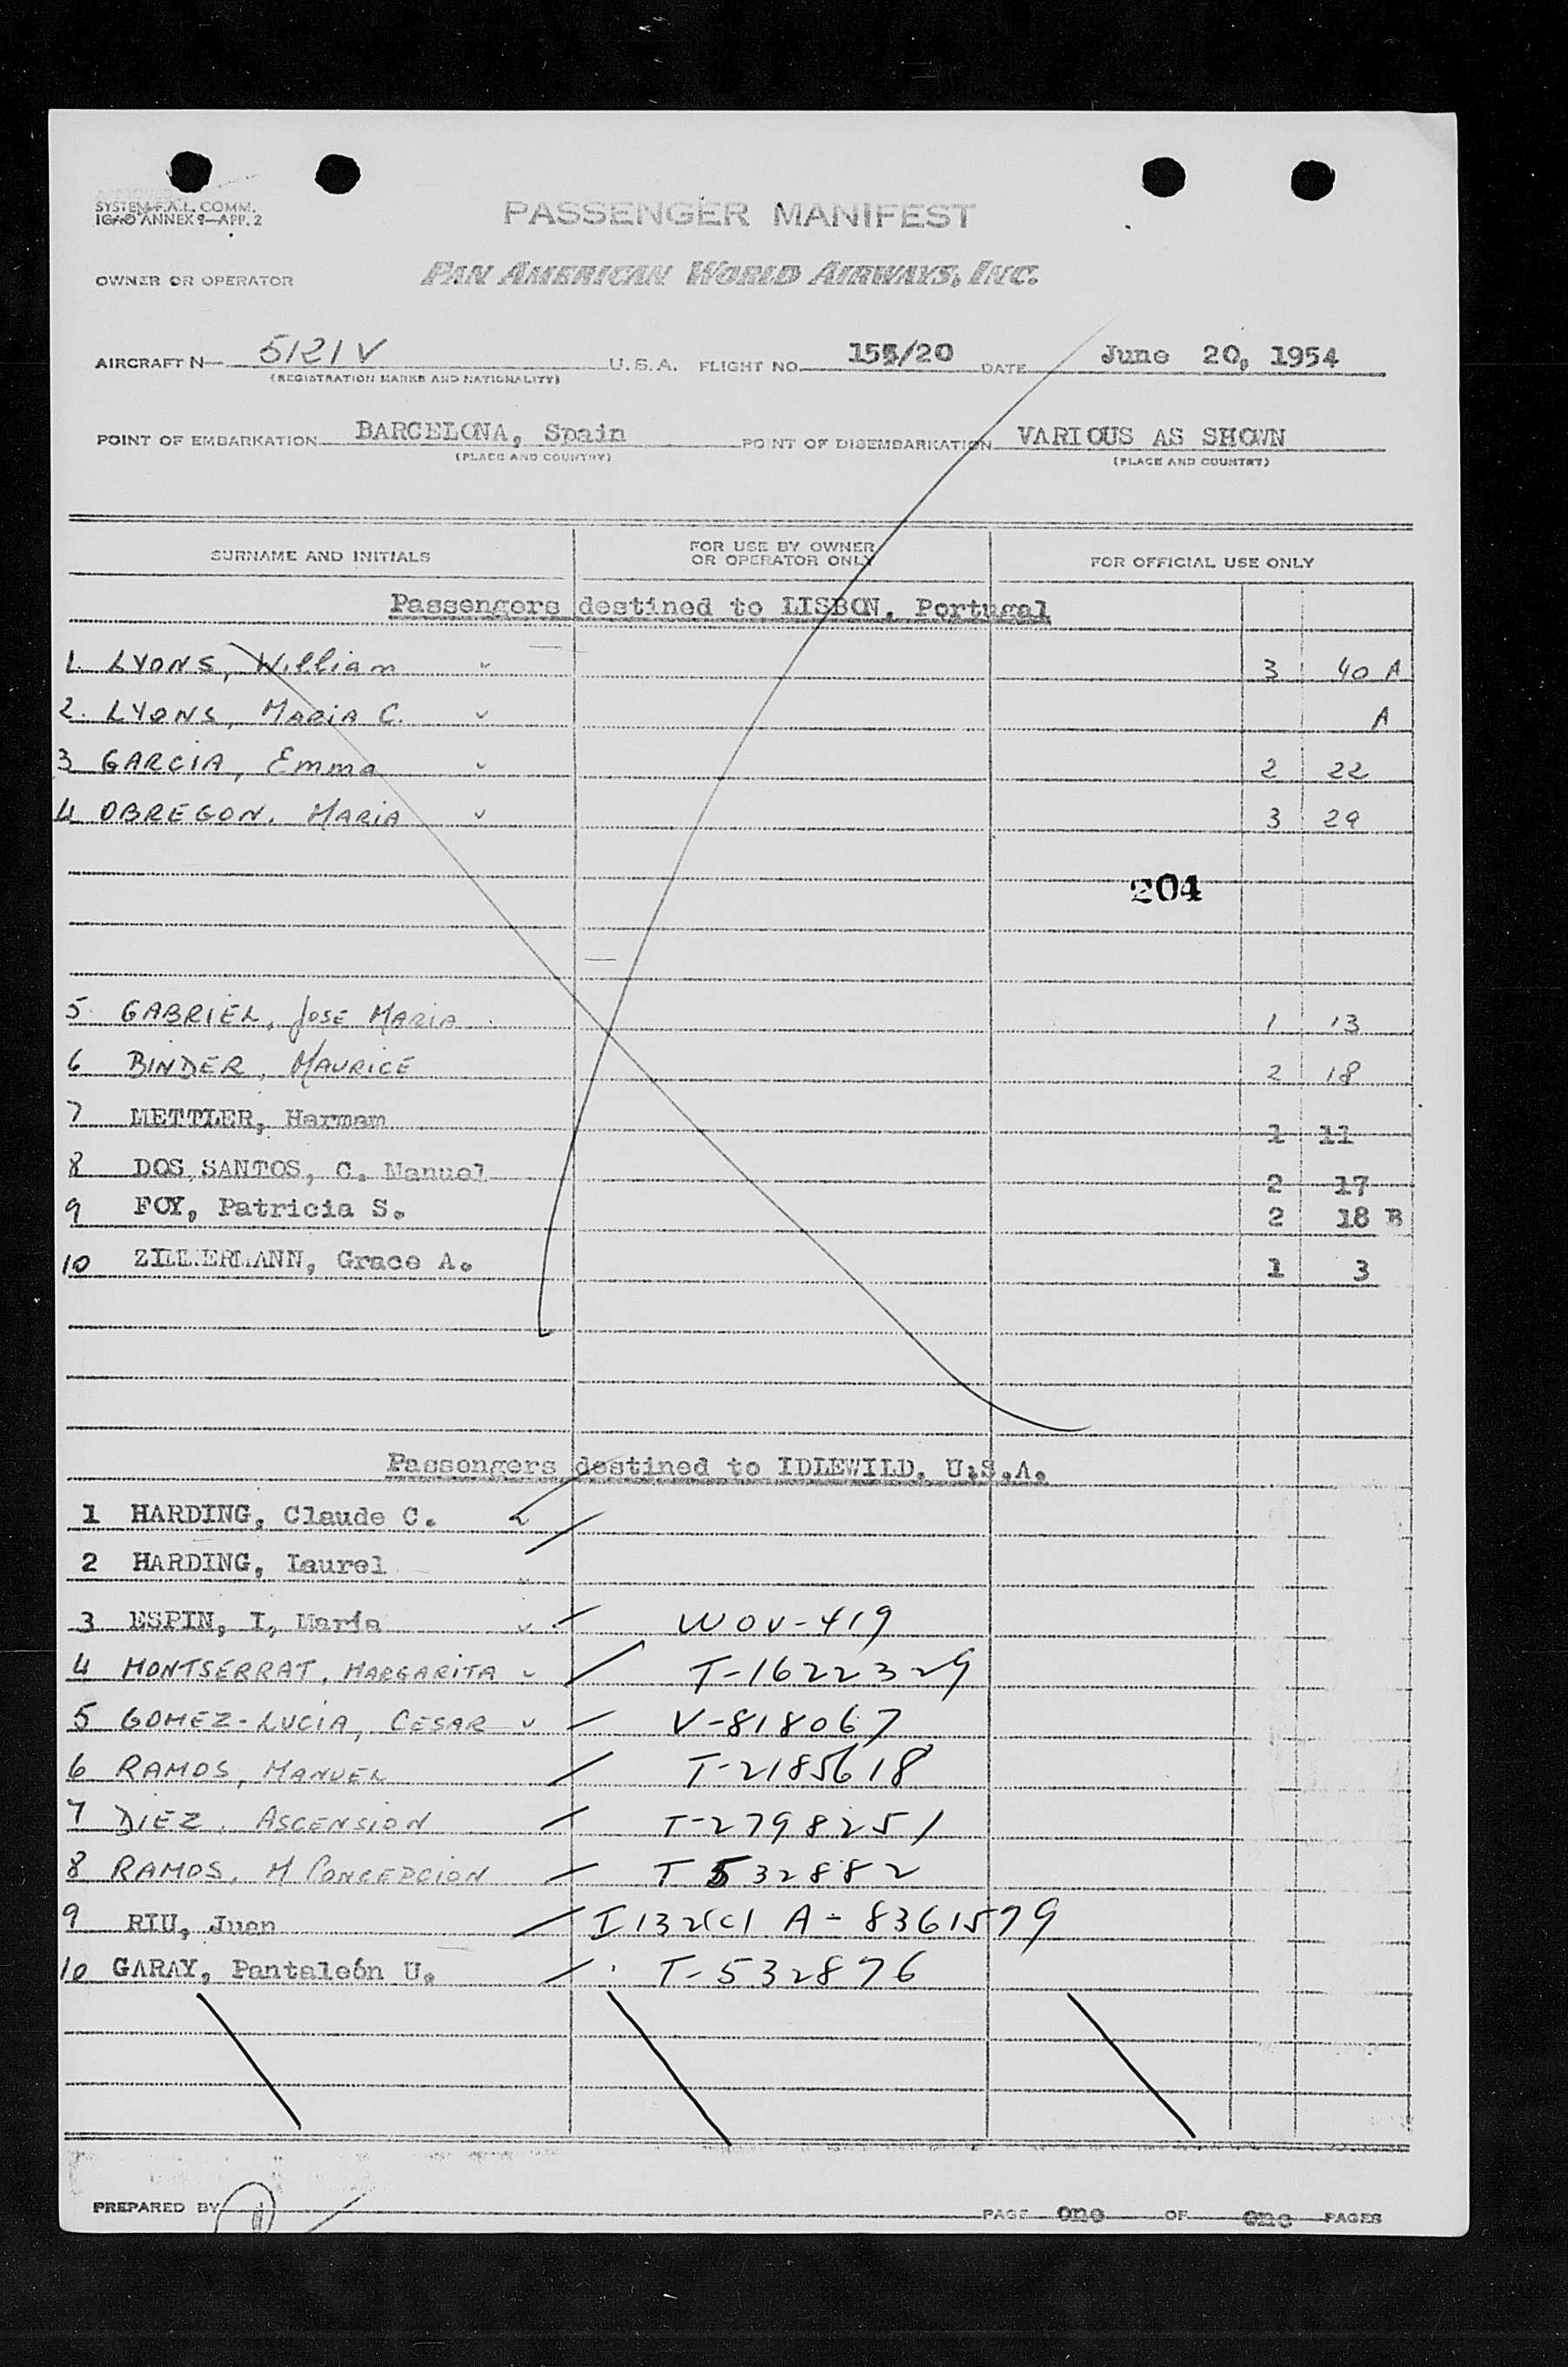 SYSTEM F.A.L. COMM.
ICAO ANNEX 9—APP. 2
PASSENGER MANIFEST
OWNER OR OPERATOR PAN AMERICAN WORLD AIRWAYS, INC.
AIRCRAFT N— 5121V U.S.A. FLIGHT NO. 155/20 DATE June 20, 1954
(REGISTRATION MARKS AND NATIONALITY)
POINT OF EMBARKATION BARCELONA, Spain POINT OF DISEMBARKATION VARIOUS AS SHOWN
(PLACE AND COUNTRY) (PLACE AND COUNTRY)
SURNAME AND INITIALS FOR USE BY OWNER OR OPERATOR ONLY FOR OFFICIAL USE ONLY
Passengers destined to LISBON, Portugal
1. LYONS, William 3 40 A
2. LYONS, MARIA C. A
3 GARCIA, Emma 2 22
4 OBREGON, MARIA 3 29
204
5 GABRIEL, JOSE MARIA 1 13
6 BINDER, MAURICE 2 18
7 METTLER, Hermam 1 11
8 DOS SANTOS, C. Manuel 2 17
9 FOY, Patricia S. 2 18 B
10 ZIMMERMANN, Grace A. 1 3
Passengers destined to IDLEWILD, U.S.A.
1 HARDING, Claude C.
2 HARDING, Laurel
3 ESPIN, I, María WOV-419
4 MONTSERRAT, MARGARITA T-1622329
5 GOMEZ-LUCIA, CESAR V-818067
6 RAMOS, MANUEL T-2185618
7 DIEZ, ASCENSION T-2798251
8 RAMOS, M CONCEPCION T 532882
9 RIU, Juan A-8361579
10 GARAY, Pantaleón U. T-532876
PREPARED BY PAGE one OF one PAGES